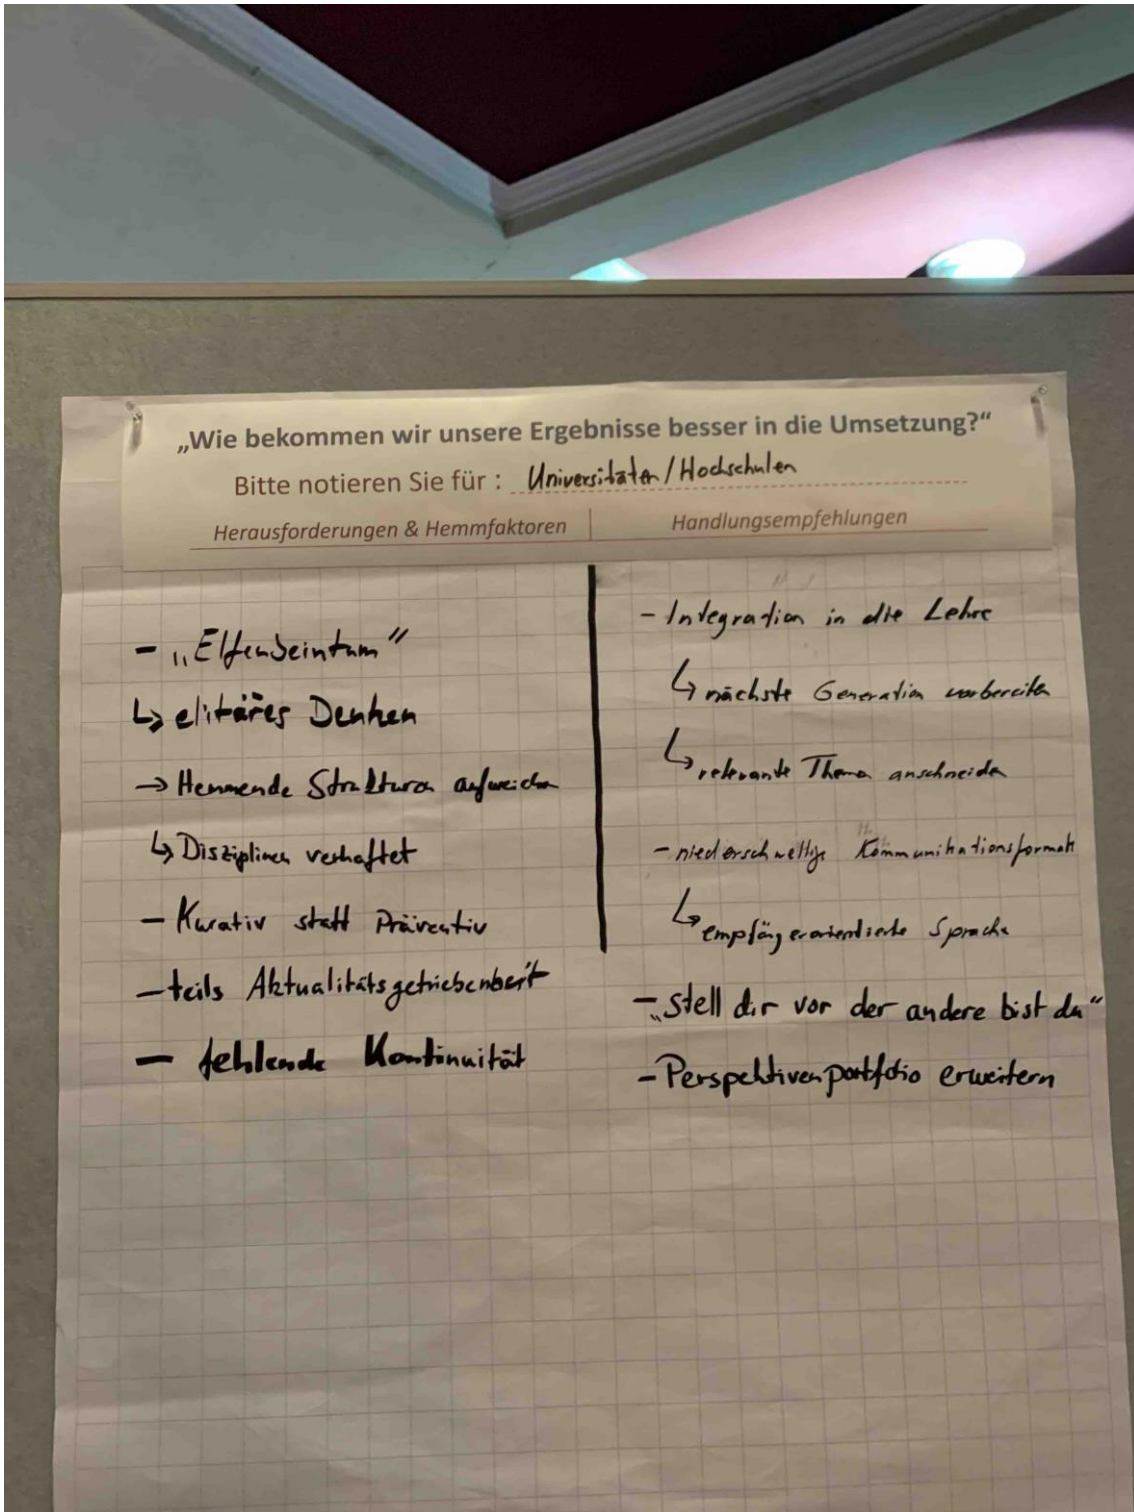 „Wie bekommen wir unsere Ergebnisse besser in die Umsetzung?“
Bitte notieren Sie für : Universitäten/Hochschulen
Herausforderungen & Hemmfaktoren
- „Elfenbeinturm“
↳ elitäres Denken
→ Hemmende Strukturen aufweichen
↳ Disziplinen verhaftet
- Kurativ statt Präventiv
- teils Aktualitätsgetriebenheit
- fehlende Kontinuität
Handlungsempfehlungen
- Integration in die Lehre
↳ nächste Generation vorbereiten
↳ relevante Themen anschneiden
- niederschwellige Kommunikationsformate
↳ empfängerorientierte Sprache
- „Stell dir vor der andere bist du“
- Perspektivenportfolio erweitern